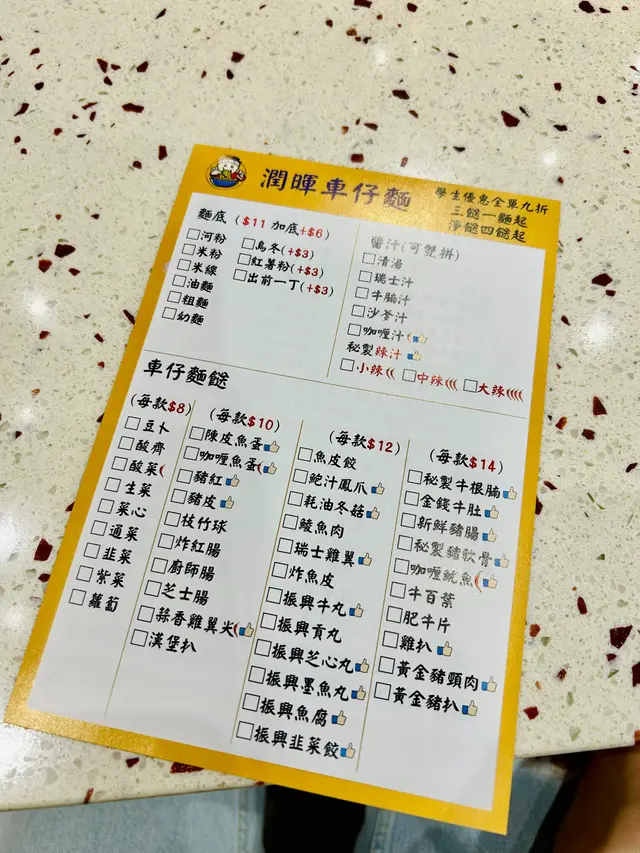 潤暉車仔麵
學生優惠全單九折
三餸一麵起
淨餸四餸起
麵底 ($11 加底+$6)
□河粉
□米粉
□米線
□油麵
□粗麵
□幼麵
□烏冬(+$3)
□紅薯粉(+$3)
□出前一丁(+$3)
醬汁(可雙拼)
□清湯
□瑞士汁
□牛腩汁
□沙爹汁
□咖喱汁
秘製辣汁
□小辣 □中辣 □大辣
車仔麵餸
(每款$8)
□豆卜
□酸齊
□酸菜
□生菜
□菜心
□通菜
□韭菜
□紫菜
□蘿蔔
(每款$10)
□陳皮魚蛋
□咖喱魚蛋
□豬紅
□豬皮
□枝竹球
□炸紅腸
□廚師腸
□芝士腸
□蒜香雞翼尖
□漢堡扒
(每款$12)
□魚皮餃
□鮑汁鳳爪
□耗油冬菇
□鯪魚肉
□瑞士雞翼
□炸魚皮
□振興牛丸
□振興貢丸
□振興芝心丸
□振興墨魚丸
□振興魚腐
□振興韭菜餃
(每款$14)
□秘製牛根腩
□金錢牛肚
□新鮮豬腸
□秘製豬軟骨
□咖喱魷魚
□牛百葉
□肥牛片
□雞扒
□黃金豬頸肉
□黃金豬扒